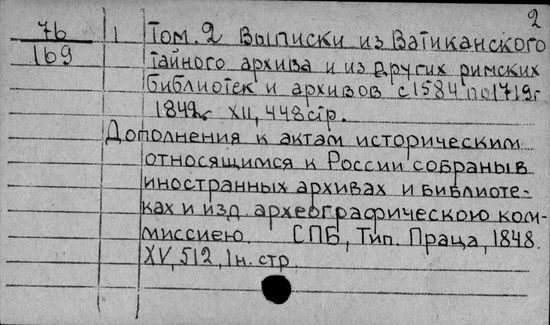 2
76 1 Том. 2 Выписки из Ватиканского
169 тайного архива и из других римских
библиотек и архивов с 1584 по 1719г
1842г XII, 448 стр.
Дополнения к актам историческим
относящимся к России собраны в
иностранных архивах и библиоте-
ках и изд. археографическою ком-
миссиею. СПБ, Тип. Праца, 1848.
XV, 512, 1 н. стр.